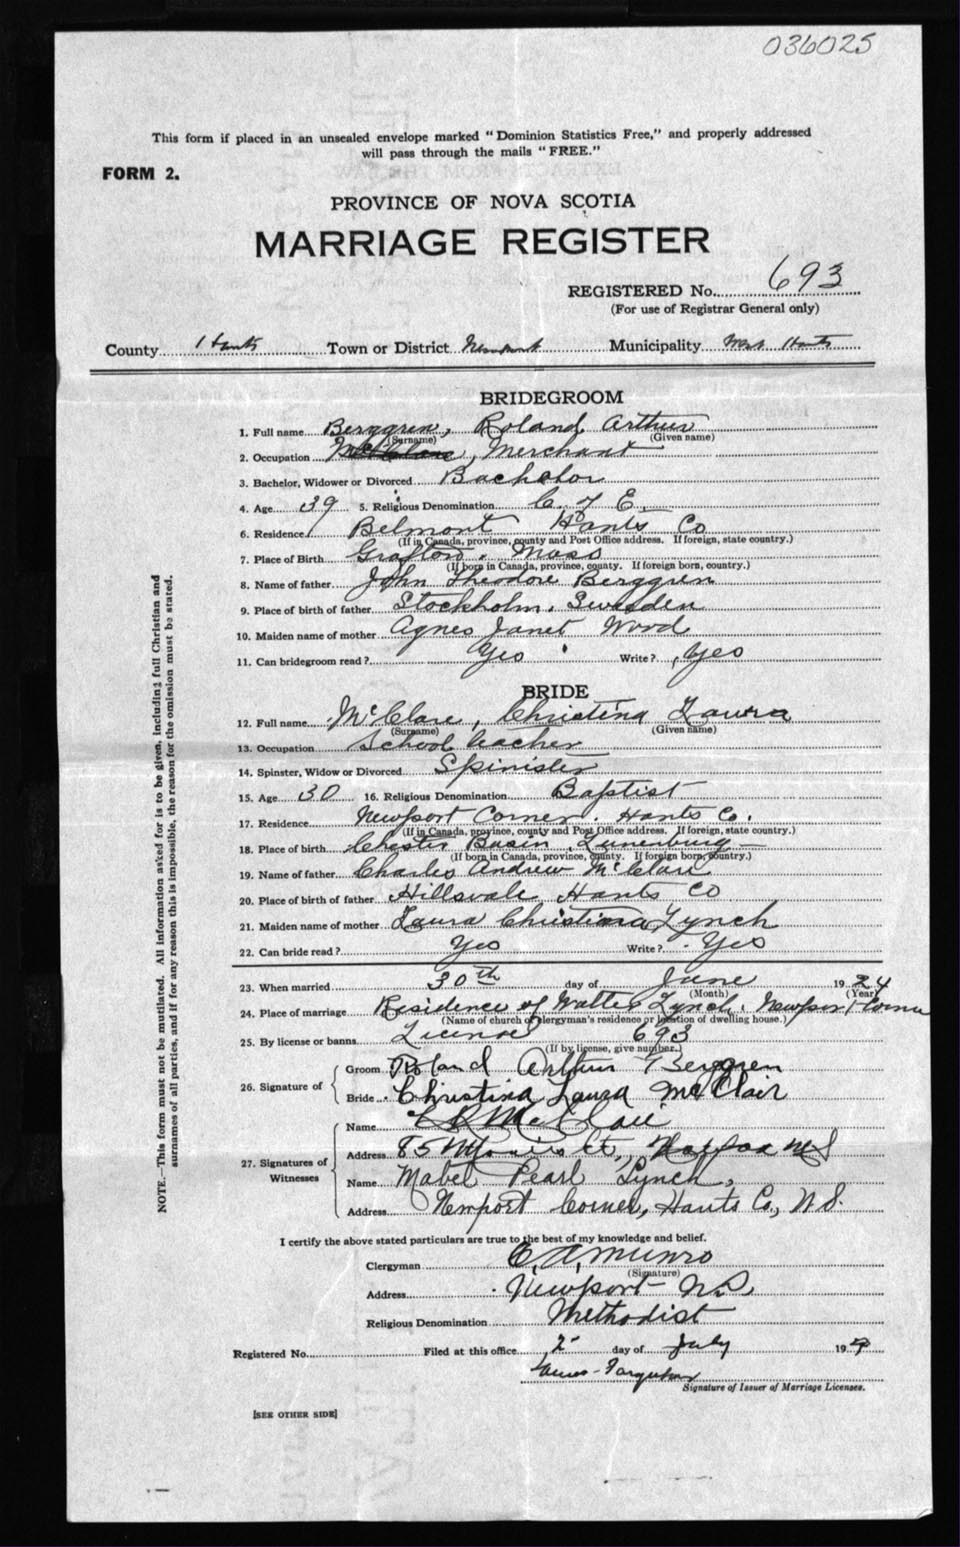 036025
This form if placed in an unsealed envelope marked "Dominion Statistics Free," and properly addressed
will pass through the mails "FREE."
FORM 2.
PROVINCE OF NOVA SCOTIA
MARRIAGE REGISTER
REGISTERED No. 693
(For use of Registrar General only)
County Hants Town or District Newport Municipality West Hants
BRIDEGROOM
1. Full name Berggren, Roland Arthur
(Surname) (Given name)
2. Occupation McClare, Merchant
3. Bachelor, Widower or Divorced Bachelor
4. Age 39 5. Religious Denomination C of E.
6. Residence Belmont Hants Co
(If in Canada, province, county and Post Office address. If foreign, state country.)
7. Place of Birth Grafton. Mass
(If born in Canada, province, county. If foreign born, country.)
8. Name of father John Theodore Berggren
9. Place of birth of father Stockholm. Sweden
10. Maiden name of mother Agnes Janet Wood
11. Can bridegroom read? Yes Write? Yes
BRIDE
12. Full name McClare, Christina Laura
(Surname) (Given name)
13. Occupation School teacher
14. Spinster, Widow or Divorced Spinister
15. Age 30 16. Religious Denomination Baptist
17. Residence Newport Corner. Hants Co.
(If in Canada, province, county and Post Office address. If foreign, state country.)
18. Place of birth Chester Basin, Lunenburg
(If born in Canada, province, county. If foreign born, country.)
19. Name of father Charles Andrew McClare
20. Place of birth of father Hillsvale Hants Co
21. Maiden name of mother Laura Christiana Lynch
22. Can bride read? Yes Write? Yes
23. When married 30th day of June 1924
(Month) (Year)
24. Place of marriage Residence of Walter Lynch. Newport Corner
(Name of church or clergyman's residence or location of dwelling house.)
25. By license or banns License 693
(If by license, give number.)
26. Signature of
Groom Roland Arthur Berggren
Bride Christina Laura McClair
27. Signatures of Witnesses
Name McClair
Address 85 Morris St., Halifax NS
Name Mabel Pearl Lynch,
Address Newport Corner, Hants Co., N.S.
I certify the above stated particulars are true to the best of my knowledge and belief.
Clergyman C. A. Munro
(Signature)
Address Newport N.S.
Religious Denomination Methodist
Registered No. Filed at this office 2 day of July 19
James Farquhar
Signature of Issuer of Marriage Licenses.
[SEE OTHER SIDE]
NOTE.—This form must not be mutilated. All information asked for is to be given, including full Christian and
surnames of all parties, and if for any reason this is impossible, the reason for the omission must be stated.